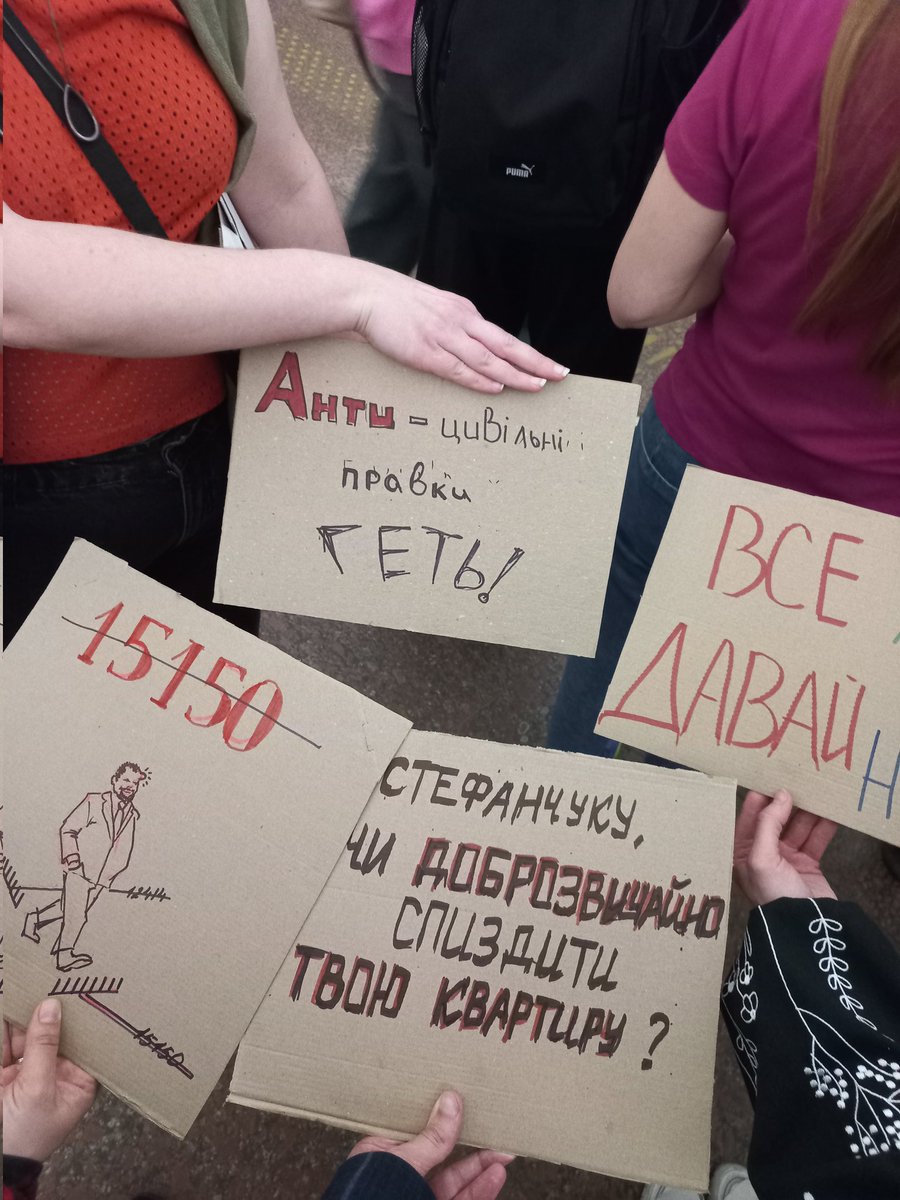 PUMA
Анти - цивільні
правки
ГЕТЬ!
ВСЕ
ДАВАЙ
Н
15150
15150
СТЕФАНЧУКУ,
ЧИ ДОБРОЗВИЧАЙНО
СПИЗДИТИ
ТВОЮ КВАРТИРУ?